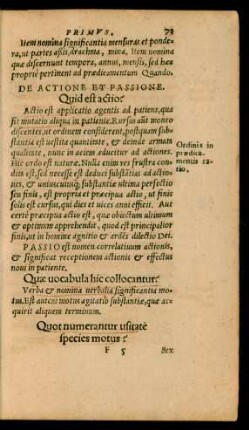 PRIMVS. 73
Item nomina significantia mensuras et ponde-
ra, ut partes assis, drachma, mina. Item nomina
quæ discernunt tempora, annus, mensis, sed hæc
propriè pertinent ad prædicamentum Quando.
DE ACTIONE ET PASSIONE.
Quid est actio?
Actio est applicatio agentis ad patiens, qua
fit mutatio aliqua in patiente. Rursus aūt monēo
discentes, ut ordinem considerent, postquam sub-
stantia est uestita quantitate, & deinde armata
qualitate, tunc in aciem adducitur ad actiones.
Hic ordo est naturæ. Nulla enim res frustra con-
dita est, sed necesse est deduci substātias ad actio-
nes, & uniuscuiusq; substantiæ ultima perfectio
seu finis, est propria et præcipua actio, ut finis
solis est cursus, qui dies et uices anni efficit. Aut
certè præcipua actio est, quæ obiectum ultimum
& optimum apprehendit, quod est principalior
finis, ut in homine agnitio & ardēs dilectio Dei.
PASSIO est nomen correlatiuum actionis,
& significat receptionem actionis & effectus
noui in patiente.
Ordinis in
prædica-
mentis ra-
tio.
Quæ uocabula hîc collocantur?
Verba & nomina uerbalia significantia mo-
tus. Est autem motus agitatio substantiæ, quæ ac-
quirit aliquem terminum.
Quot numerantur usitatè
species motus?
F 5 Sex